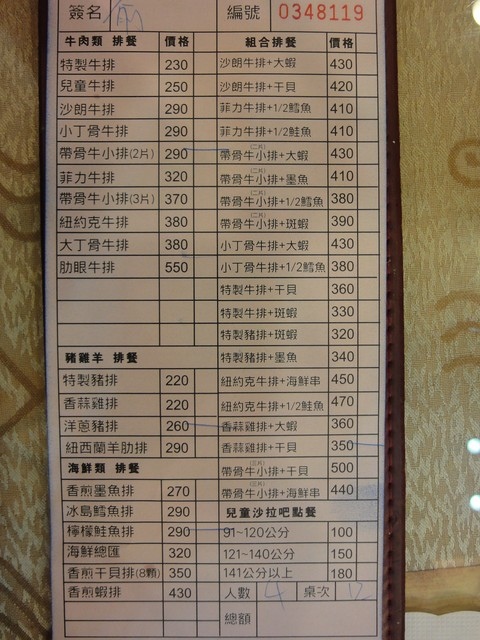 簽名 編號 0348119
牛肉類 排餐 價格 組合排餐 價格
特製牛排 230 沙朗牛排+大蝦 430
兒童牛排 250 沙朗牛排+干貝 420
沙朗牛排 290 菲力牛排+1/2鱈魚 410
小丁骨牛排 290 菲力牛排+1/2鮭魚 410
帶骨牛小排(2片) 290 帶骨牛小排(二片)+大蝦 430
菲力牛排 320 帶骨牛小排(二片)+墨魚 410
帶骨牛小排(3片) 370 帶骨牛小排(二片)+1/2鱈魚 380
紐約克牛排 380 帶骨牛小排(二片)+斑蝦 390
大丁骨牛排 380 小丁骨牛排+大蝦 430
肋眼牛排 550 小丁骨牛排+1/2鱈魚 380
特製牛排+干貝 360
特製牛排+斑蝦 330
特製豬排+斑蝦 320
豬雞羊 排餐 特製豬排+墨魚 340
特製豬排 220 紐約克牛排+海鮮串 450
香蒜雞排 220 紐約克牛排+1/2鮭魚 470
洋蔥豬排 260 香蒜雞排+大蝦 360
紐西蘭羊肋排 290 香蒜雞排+干貝 350
海鮮類 排餐 帶骨牛小排+干貝 500
香煎墨魚排 270 帶骨牛小排+海鮮串 440
冰島鱈魚排 290 兒童沙拉吧點餐
檸檬鮭魚排 290 91~120公分 100
海鮮總匯 320 121~140公分 150
香煎干貝排(8顆) 350 141公分以上 180
香煎蝦排 430 人數 4 桌次 12
總額